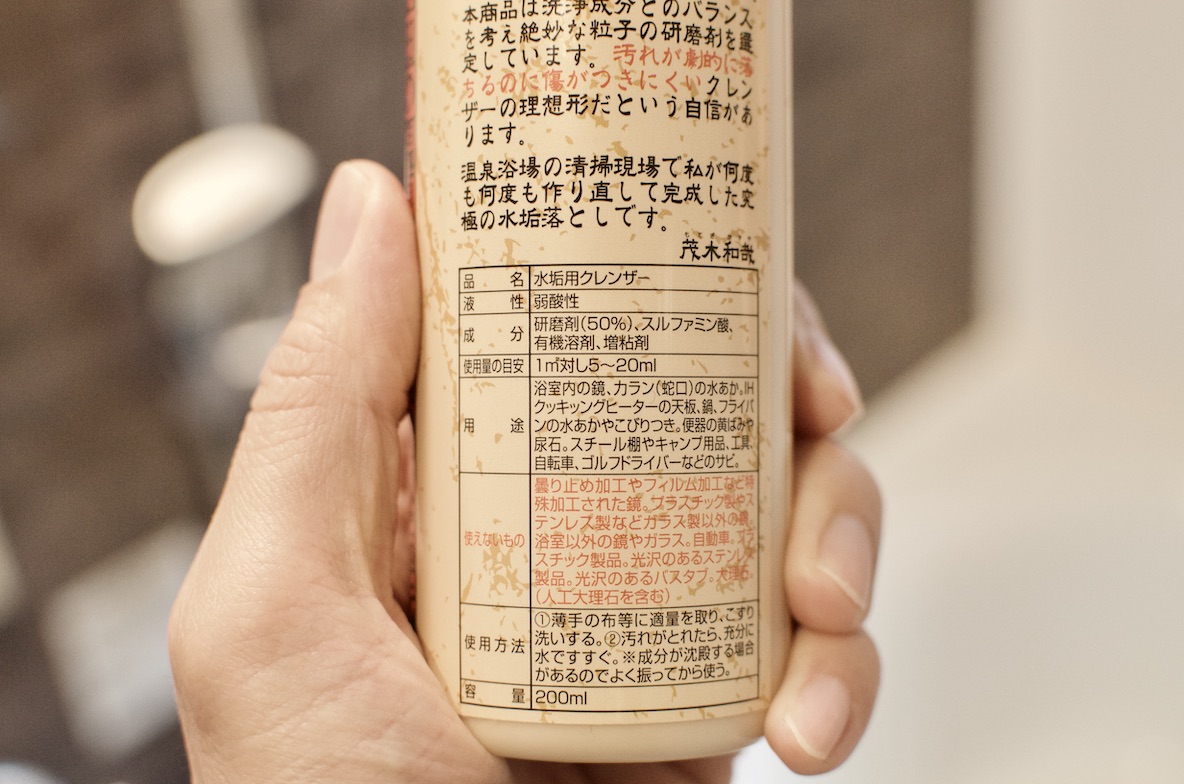 本商品は洗浄成分とのバランス
を考え絶妙な粒子の研磨剤を選
定しています。汚れが劇的に落
ちるのに傷がつきにくいクレン
ザーの理想形だという自信があ
ります。
温泉浴場の清掃現場で私が何度
も何度も作り直して完成した究
極の水垢落としです。
茂木和哉
品名 水垢用クレンザー
液性 弱酸性
成分 研磨剤(50%)、スルファミン酸、
有機溶剤、増粘剤
使用量の目安 1㎡対し5〜20ml
用途 浴室内の鏡、カラン(蛇口)の水あか。IH
クッキングヒーターの天板、鍋、フライパ
ンの水あかやこびりつき。便器の黄ばみや
尿石。スチール棚やキャンプ用品、工具、
自転車、ゴルフドライバーなどのサビ。
使えないもの 曇り止め加工やフィルム加工など特
殊加工された鏡。プラスチック製やス
テンレス製などガラス製以外の鏡。
浴室以外の鏡やガラス。自動車。プラ
スチック製品。光沢のあるステンレス
製品。光沢のあるバスタブ。大理石。
(人工大理石を含む)
使用方法 ①薄手の布等に適量を取り、こすり
洗いする。②汚れがとれたら、充分に
水ですすぐ。※成分が沈殿する場合
があるのでよく振ってから使う。
容量 200ml